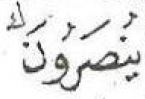 يُنصَرُونَ